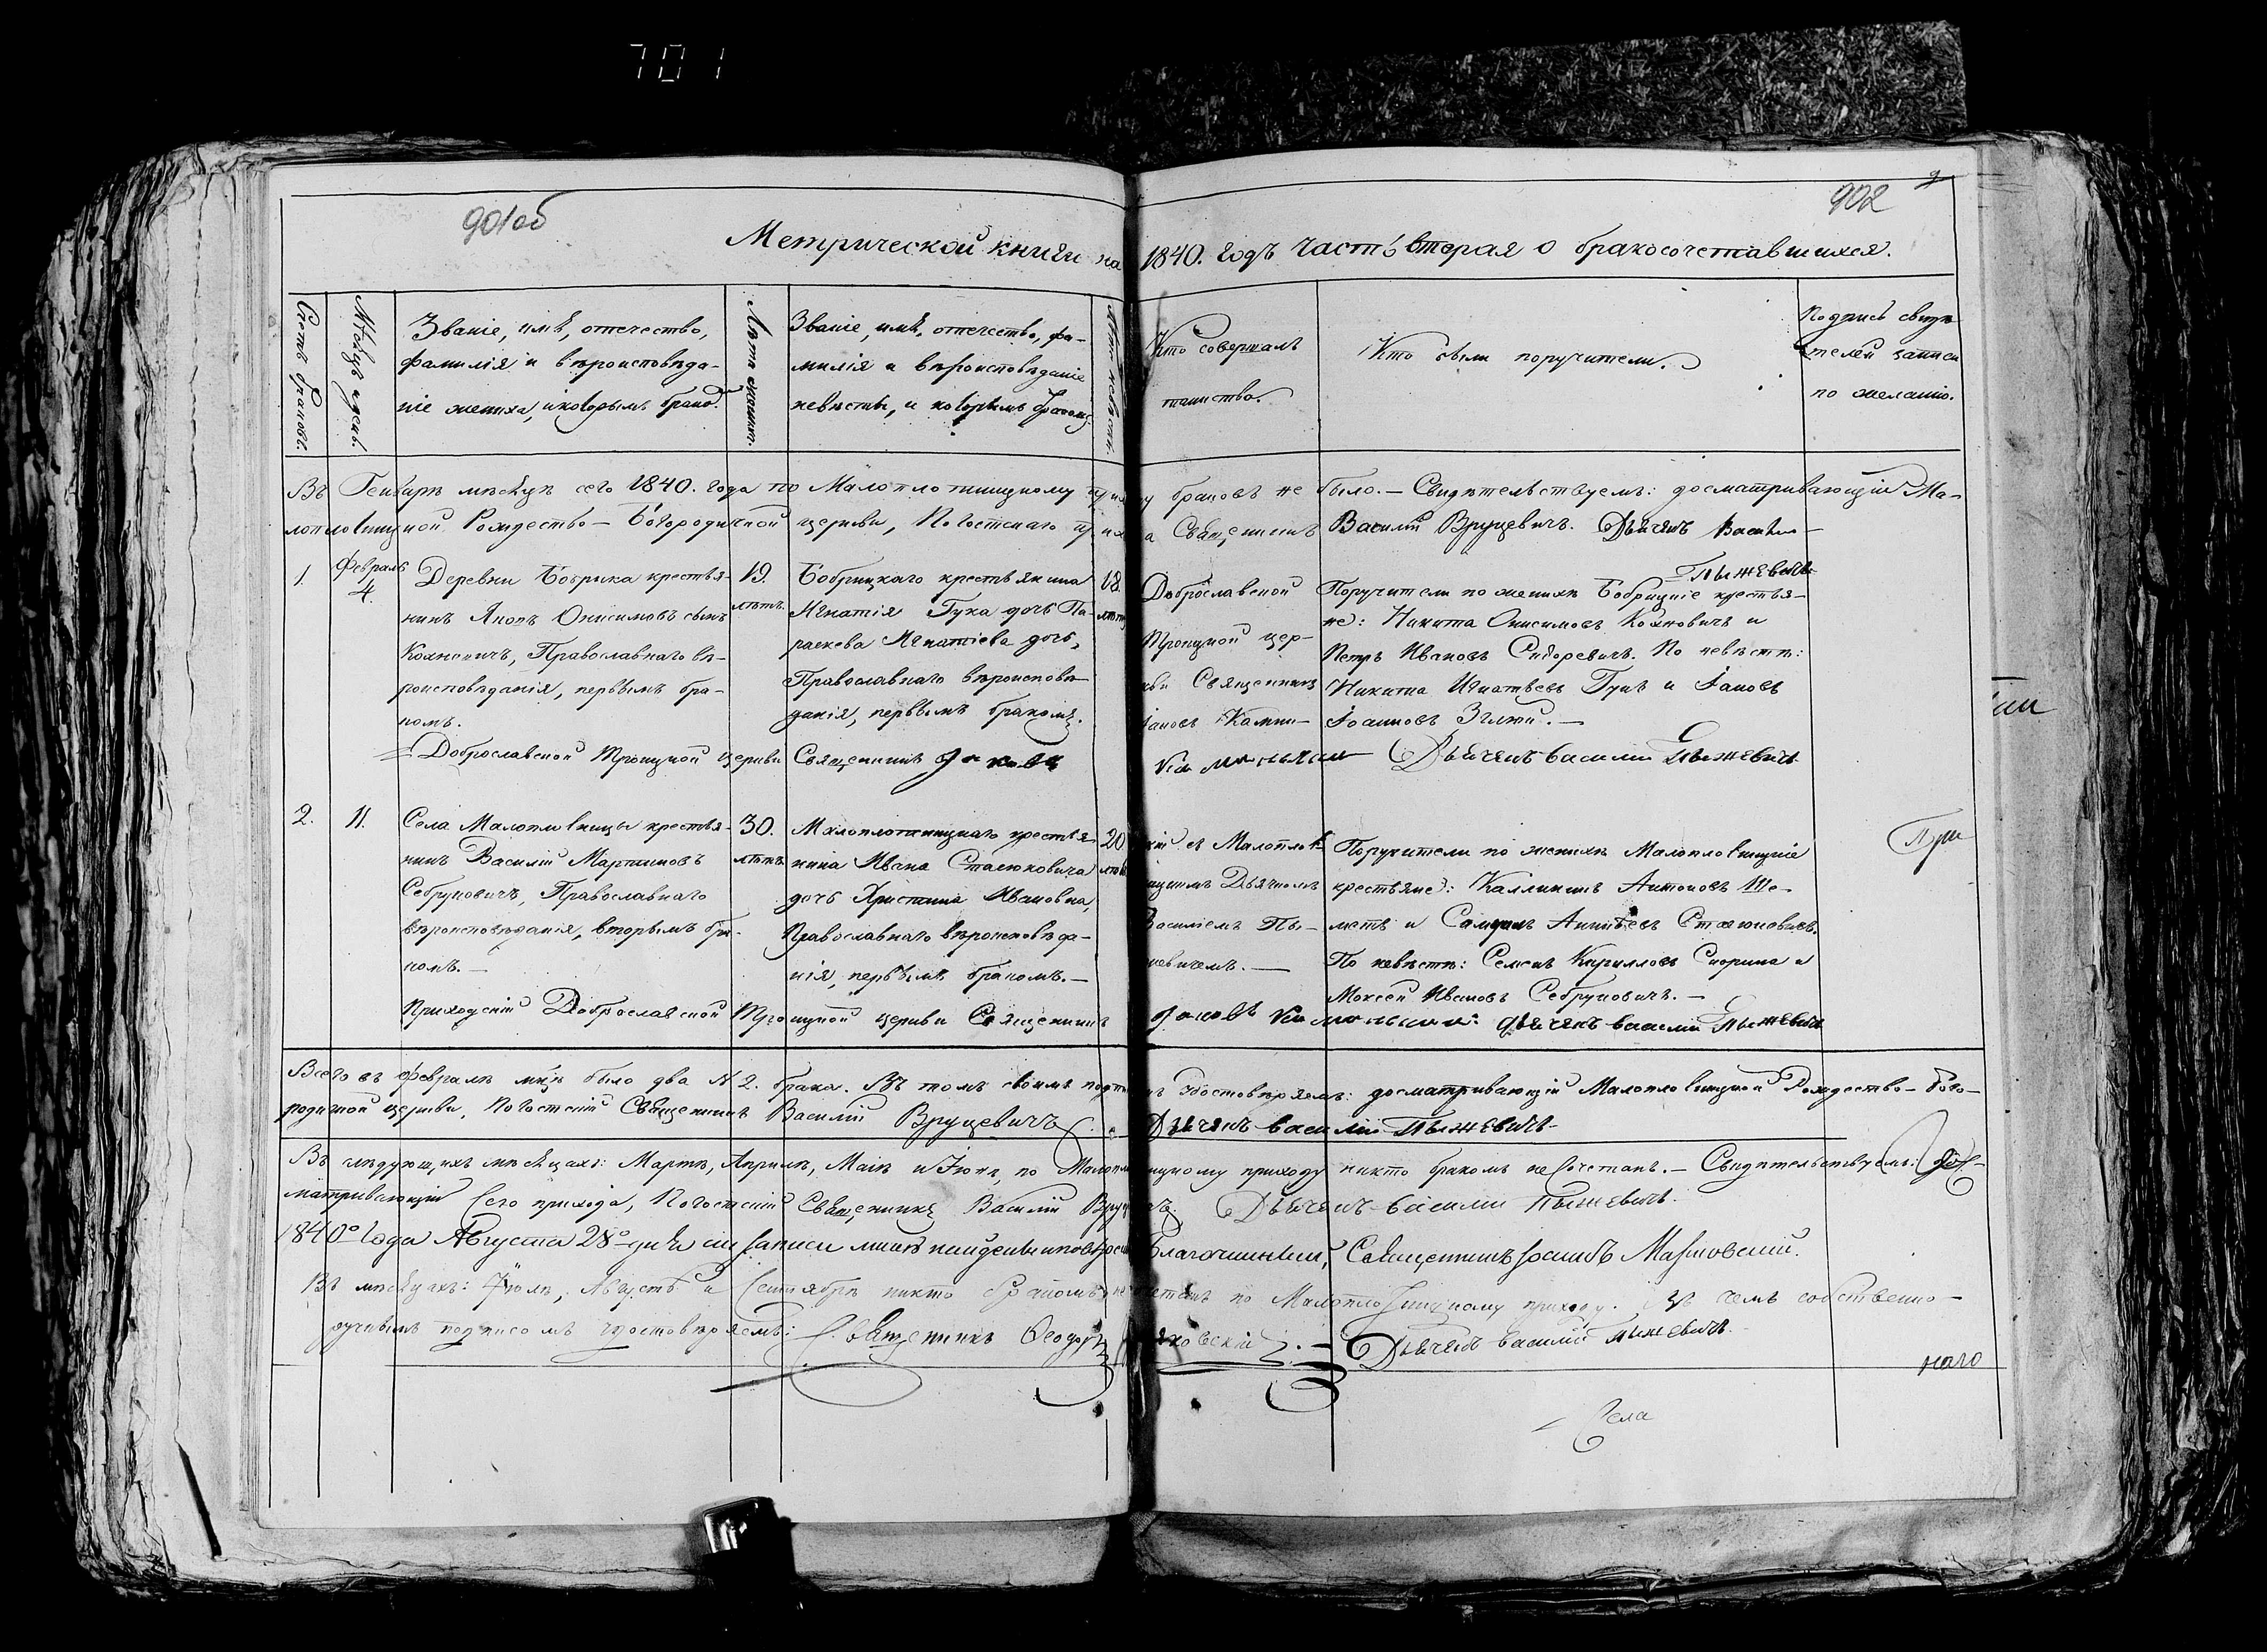 701
901об
902
9
Метрической книги на 1840. годъ часть вторая о бракосочетавшихся.
Счетъ браковъ.
Мѣсяцъ и день.
Званіе, имя, отечество,
фамилія и вѣроисповѣда-
ніе жениха, и которымъ брако.
Лѣта жениха.
Званіе, имя, отечество, фа-
милія и вѣроисповѣданіе
невѣсты, и которымъ бракомъ
Лѣта невѣсты.
Кто совершалъ
таинство.
Кто были поручители.
Подпись свидѣ-
телей записи
по желанію.
Въ Генварѣ мѣсяцѣ сего 1840. года по Малоплотницкому браковъ не было. — Свидѣтельствуемъ: досматривающій Ма-
лоплотницкой Рождество-Богородичной церкви, Погостскаго Священникъ Василій Вруцевичъ. Дьячекъ Василій
Пыжевичъ
1.
Февраль
4.
Деревни Бобрика крестья-
нинъ Яковъ Онисимовъ сынъ
Кохновичъ, Православнаго вѣ-
роисповѣданія, первымъ бра-
комъ.
19.
лѣтъ.
Бобрицкаго крестьянина
Игнатія Гука дочь Па-
раскева Игнатіева дочь,
Православнаго вѣроисповѣ-
данія, первымъ бракомъ.
18.
лѣтъ
Доброславской
Троицкой цер-
кви Священникъ
Іаковъ
Поручители по женихѣ Бобрицкіе крестья-
не: Никита Онисимовъ Кохновичъ и
Петръ Ивановъ Сидоревичъ. По невѣстѣ:
Никита Игнатьевъ Гукъ и Іаковъ
Іоанновъ
Доброславской Троицкой церкви Священникъ Іаковъ Дьячекъ Василій Пыжевичъ
2.
11.
Села Малоплотницы крестья-
нинъ Василій Мартиновъ
Себруковичъ, Православнаго
вѣроисповѣданія, вторымъ бра-
комъ. —
30.
лѣтъ.
Малоплотницкаго крестья-
нина Ивана Стаснковича
дочь Христина Ивановна,
Православнаго вѣроисповѣда-
нія, первымъ бракомъ. —
20
лѣтъ
съ Малоплот-
ницкимъ Дьячкомъ
Василіемъ Пы-
жевичемъ. —
Поручители по женихѣ Малоплотницкіе
крестьяне: Каллиникъ Антоновъ Ше-
метъ и
По невѣстѣ: Семенъ Кирилловъ Скорина и
Моисей Ивановъ Себруковичъ. —
Приходскій Доброславской Троицкой церкви Священникъ Іаковъ Дьячекъ Василій Пыжевичъ
При
Всего въ Февралѣ мцѣ было два N 2. брака. Въ томъ своимъ удостовѣряемъ: досматривающій Малоплотницкой Рождество-Бого-
родичной церкви, Погостскій Священникъ Василій Вруцевичъ Дьячекъ Василій Пыжевичъ
Въ слѣдующихъ мѣсяцахъ: Мартѣ, Апрѣлѣ, Маіѣ и Іюнѣ, по приходу никто бракомъ не сочетанъ. — Свидѣтельствуемъ: дос-
матривающій сего прихода, Погостскій Священникъ Василій Вруцевичъ. Дьячекъ Василій Пыжевичъ.
1840го года Августа 28го дня сіи записи мною найдены Благочинный, Священникъ
Въ мѣсяцахъ: Іюлѣ, Августѣ и Сентябрѣ никто бракомъ не сочетанъ по Малоплотницкому приходу. Въ чемъ собственно-
ручнымъ подписомъ удостовѣряемъ: Священникъ Ѳеодоръ Дьячекъ Василій Пыжевичъ.
наго
Села